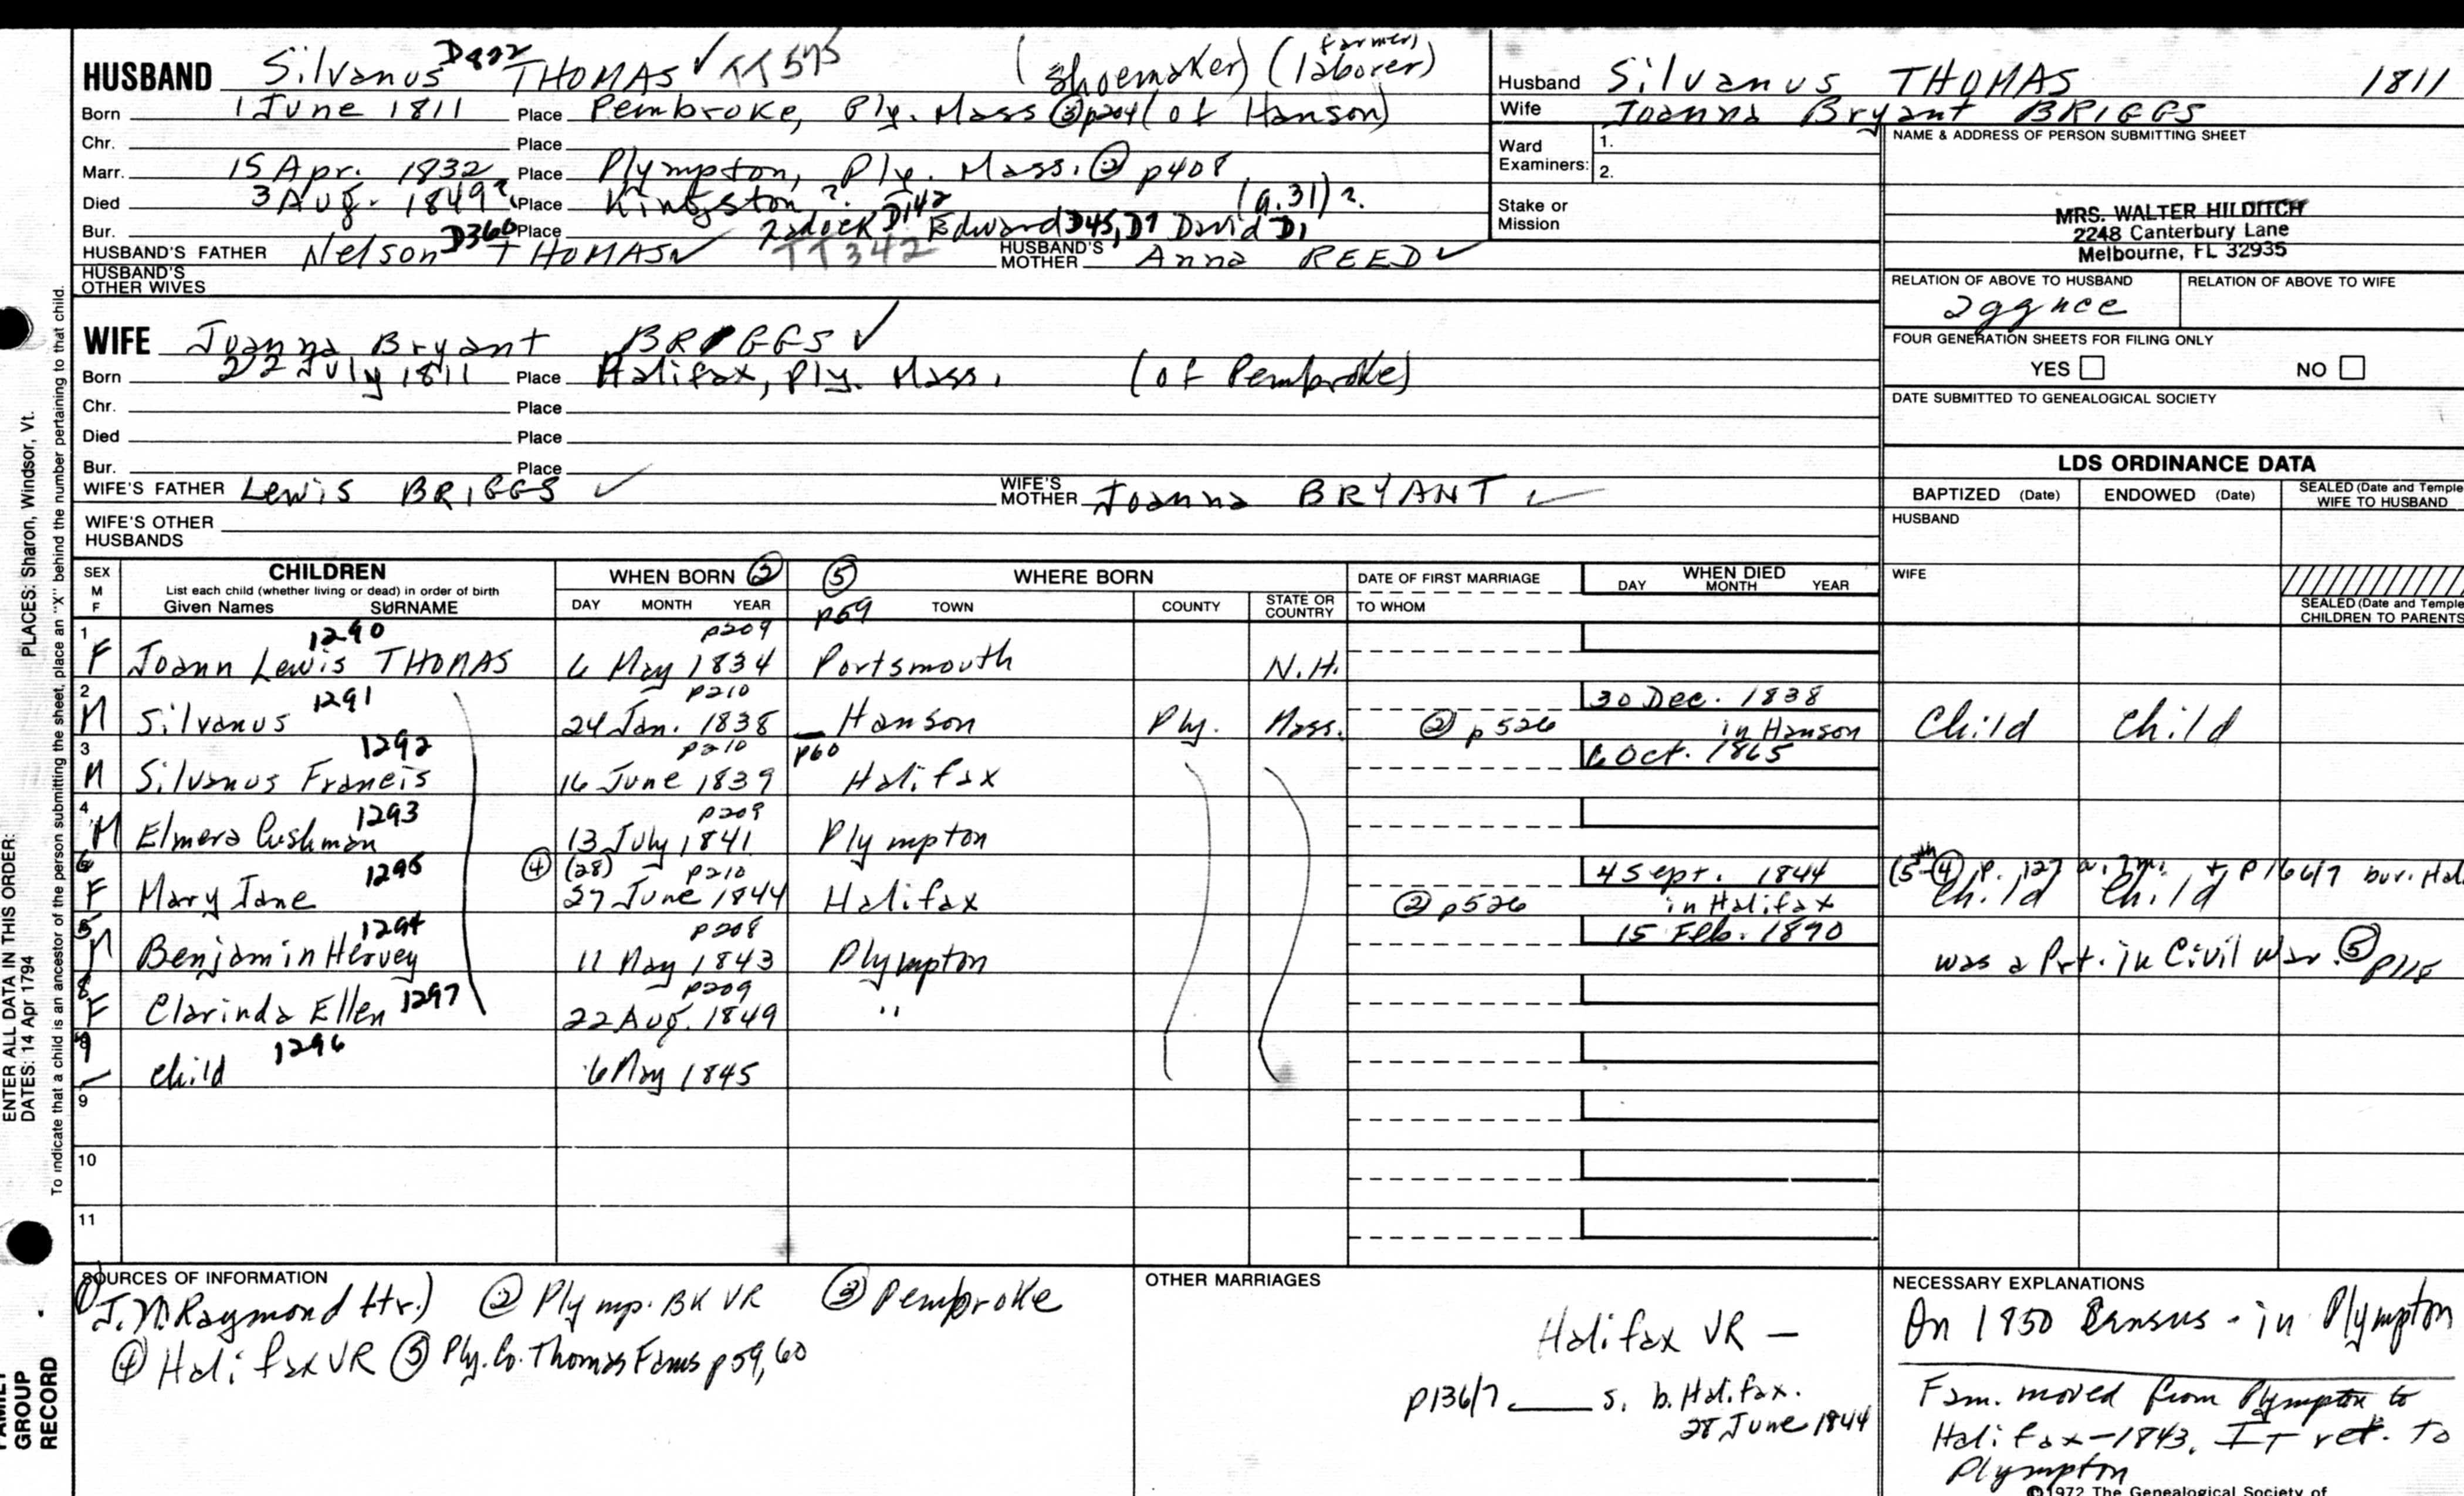 HUSBAND Silvanus D922 THOMAS ✓ TT 575 (Shoemaker) (farmer, laborer)
Born 1 June 1811 Place Pembroke, Ply. Mass ③ p204 (of Hanson)
Chr. Place
Marr. 15 Apr. 1832 Place Plympton, Ply. Mass. ② p408
Died 3 Aug. 1849? Place Kingston ? (a.31) ?
Bur. Place Zadock D142 Edward D45, D7 David D1
HUSBAND'S FATHER Nelson D360 THOMAS ✓ TT342 HUSBAND'S MOTHER Anna REED ✓
HUSBAND'S OTHER WIVES
WIFE Joanna Bryant BRIGGS ✓
Born 22 July 1811 Place Halifax, Ply. Mass. (of Pembroke)
Chr. Place
Died Place
Bur. Place
WIFE'S FATHER Lewis BRIGGS ✓ WIFE'S MOTHER Joanna BRYANT ✓
WIFE'S OTHER HUSBANDS
Husband Silvanus THOMAS 1811
Wife Joanna Bryant BRIGGS
Ward Examiners: 1.
2.
Stake or Mission
NAME & ADDRESS OF PERSON SUBMITTING SHEET
MRS. WALTER HILDITCH
2248 Canterbury Lane
Melbourne, FL 32935
RELATION OF ABOVE TO HUSBAND RELATION OF ABOVE TO WIFE
2ggnce
FOUR GENERATION SHEETS FOR FILING ONLY
YES NO
DATE SUBMITTED TO GENEALOGICAL SOCIETY
LDS ORDINANCE DATA
BAPTIZED (Date) ENDOWED (Date) SEALED (Date and Temple WIFE TO HUSBAND
HUSBAND
WIFE
SEALED (Date and Temple CHILDREN TO PARENTS
SEX M F CHILDREN
List each child (whether living or dead) in order of birth
Given Names SURNAME
WHEN BORN ②
DAY MONTH YEAR
⑤ p59 WHERE BORN
TOWN COUNTY STATE OR COUNTRY
DATE OF FIRST MARRIAGE
TO WHOM
WHEN DIED
DAY MONTH YEAR
1 1290 p209
F Joann Lewis THOMAS 6 May 1834 Portsmouth N.H.
2 1291 p210 30 Dec. 1838
M Silvanus 24 Jan. 1838 Hanson Ply. Mass. ② p526 in Hanson Child Child
3 1292 p210 p60 6 Oct. 1865
M Silvanus Francis 16 June 1839 Halifax
4 1293 p209
M Elmera Cushman 13 July 1841 Plympton
6 1295 ④ (28) p210 4 Sept. 1844 (5th ④ p. 127 a. 2m. + p166/7 bur. Hal
F Mary Jane 27 June 1844 Halifax ② p526 in Halifax Child Child
5 1294 p208 15 Feb. 1890
M Benjamin Hervey 11 May 1843 Plympton was a Pvt. in Civil War ⑤ p115
8 1297 p209
F Clarinda Ellen 22 Aug. 1849 "
1296
child 6 May 1845
9
10
11
SOURCES OF INFORMATION
① J.M. Raymond ltr.) ② Plymp. BK VR ③ Pembroke
④ Halifax VR ⑤ Ply. Co. Thomas Fams p59, 60
OTHER MARRIAGES
Halifax VR —
p136/7 ____ s. b. Halifax.
28 June 1844
NECESSARY EXPLANATIONS
On 1850 Census - in Plympton
Fam. moved from Plympton to
Halifax - 1843. It ret. to
Plympton
©1972 The Genealogical Society of
ENTER ALL DATA IN THIS ORDER:
DATES: 14 Apr 1794 PLACES: Sharon, Windsor, Vt.
To indicate that a child is an ancestor of the person submitting the sheet, place an "X" behind the number pertaining to that child.
FAMILY GROUP RECORD